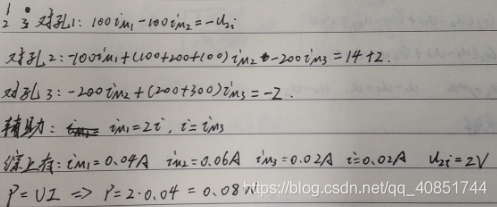 对孔1: 100im1-100im2=-U2i
对孔2: -100im1+(100+200+100)im2-200im3=14+2.
对孔3: -200im2+(200+300)im3=-2.
辅助: im1=2i, i=im3
综上有: im1=0.04A im2=0.06A im3=0.02A i=0.02A U2i=2V
P=UI => P=2·0.04=0.08W
https://blog.csdn.net/qq_40851744